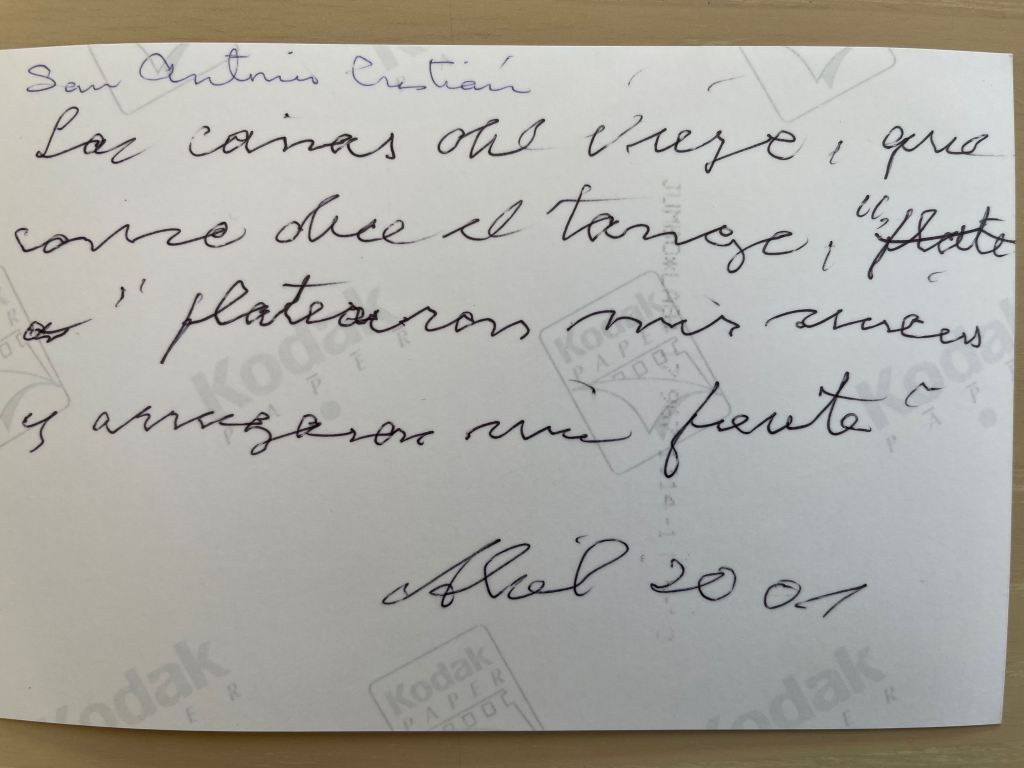 San Antonio Cristián
Las canas del viejo, que
como dice el tango, "plate
" platearon mis sienes
y arrugaron mi frente"
Abril 2001
Kodak
PAPER
Kodak
PAPER
Kodak
PAPER
Kodak